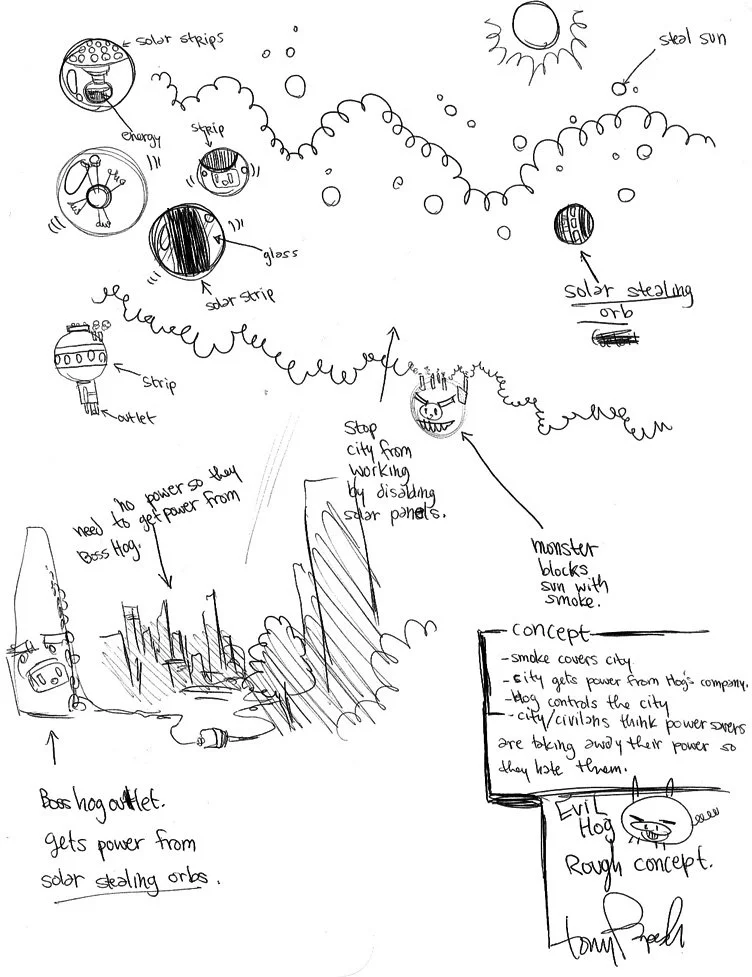 solar strips
energy
strip
plug
glass
solar strip
steal sun
solar stealing
orb
strip
outlet
Stop
city from
working
by disabling
solar panels.
no power so they
need to get power from
Boss Hog.
monster
blocks
sun with
smoke.
concept
- smoke covers city
- city gets power from Hog's company.
- Hog controls the city
- city/civilans think power savers
are taking away their power so
they hate them.
Boss hog outlet.
gets power from
solar stealing orbs.
EviL
Hog
Rough concept.
tony